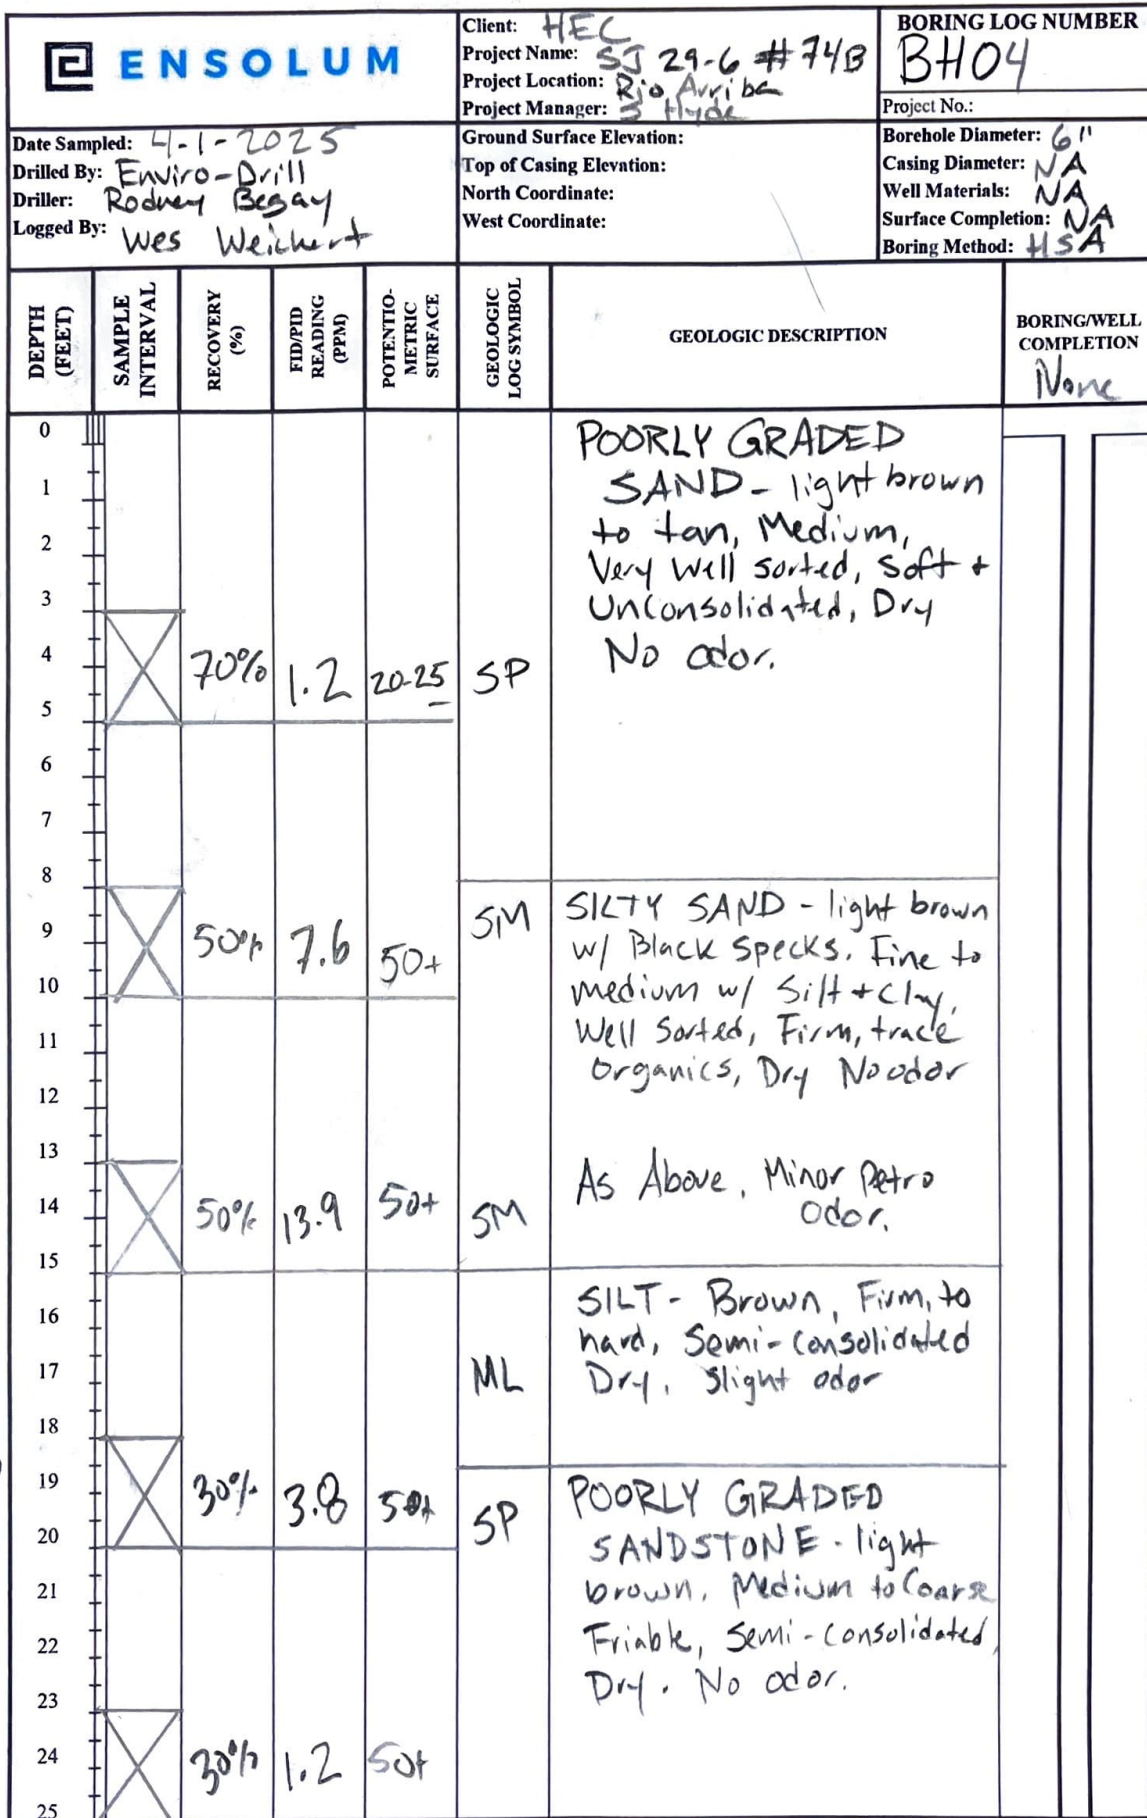 ENSOLUM
Client: HEC
Project Name: SJ 29-6 #74B
Project Location: Rio Arriba
Project Manager: S Hyde
BORING LOG NUMBER
BH04
Project No.:
Date Sampled: 4-1-2025
Drilled By: Enviro-Drill
Driller: Rodney Begay
Logged By: Wes Weichert
Ground Surface Elevation:
Top of Casing Elevation:
North Coordinate:
West Coordinate:
Borehole Diameter: 6"
Casing Diameter: NA
Well Materials: NA
Surface Completion: NA
Boring Method: HSA
DEPTH (FEET)
SAMPLE INTERVAL
RECOVERY (%)
FID/PID READING (PPM)
POTENTIO-METRIC SURFACE
GEOLOGIC LOG SYMBOL
GEOLOGIC DESCRIPTION
BORING/WELL COMPLETION
None
0 POORLY GRADED
1 SAND - light brown
2 to tan, Medium,
Very Well sorted, Soft +
3 Unconsolidated, Dry
4 70% 1.2 20-25 SP No odor.
5
6
7
8
9 50% 7.6 50+ SM SILTY SAND - light brown
w/ Black Specks. Fine to
10 medium w/ Silt + Clay,
11 Well Sorted, Firm, trace
Organics, Dry No odor
12
13
14 50% 13.9 50+ SM As Above, Minor Petro
Odor.
15
16 SILT - Brown, Firm, to
hard, Semi-consolidated
17 ML Dry. Slight odor
18
19 30% 3.8 50+ SP POORLY GRADED
20 SANDSTONE - light
21 brown, Medium to Coarse
22 Friable, Semi-consolidated,
23 Dry. No odor.
24 30% 1.2 50+
25